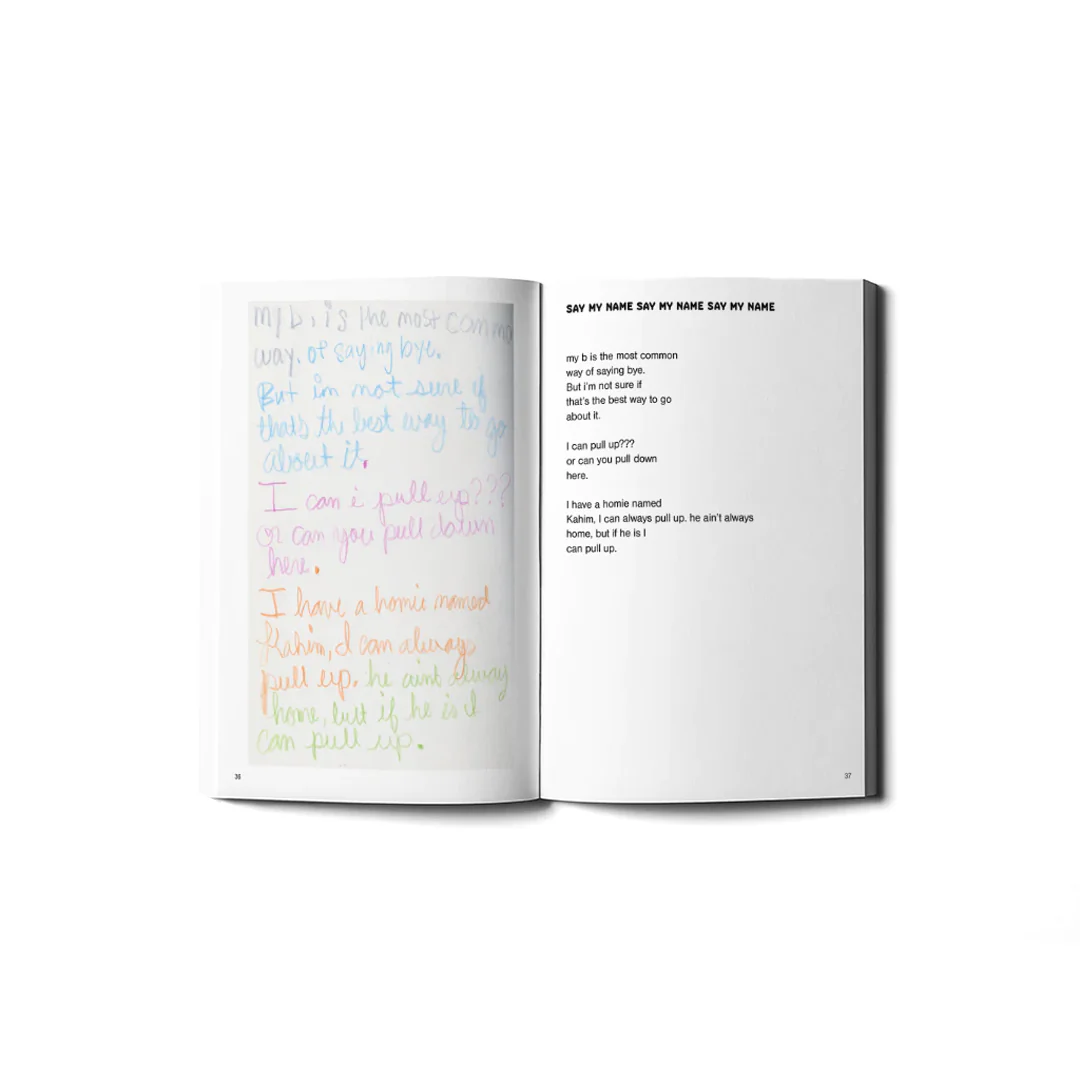 my b, is the most common
way. of saying bye.
But im not sure if
thats the best way to go
about it.
I can i pull up???
or can you pull down
here.
I have a homie named
Kahim, I can always
pull up. he aint alway
home, but if he is I
can pull up.
36
SAY MY NAME SAY MY NAME SAY MY NAME
my b is the most common
way of saying bye.
But i'm not sure if
that's the best way to go
about it.
I can pull up???
or can you pull down
here.
I have a homie named
Kahim, I can always pull up. he ain't always
home, but if he is I
can pull up.
37